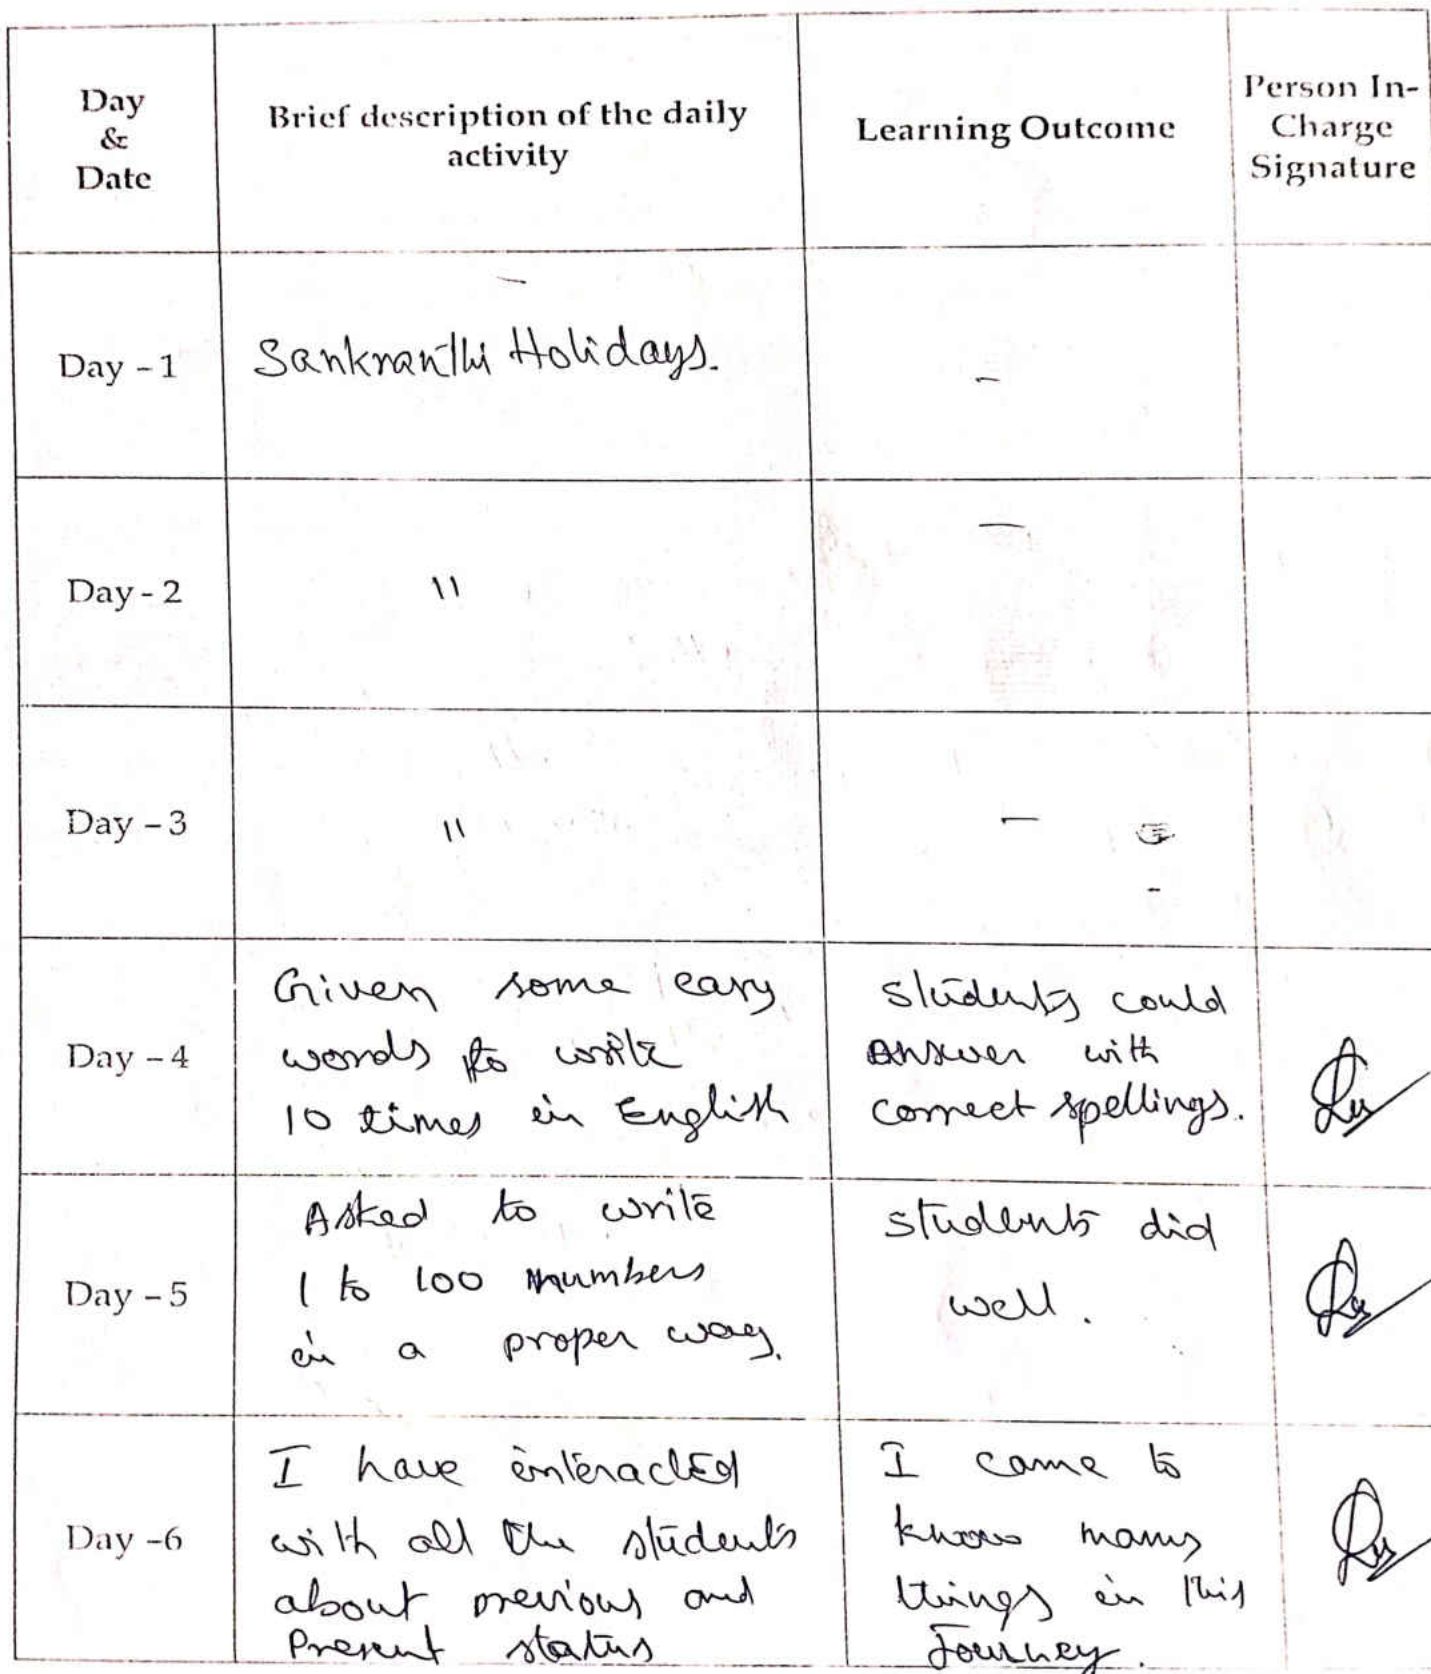 Day
&
Date
Brief description of the daily
activity
Learning Outcome
Person In-
Charge
Signature
Day - 1
Sankranthi Holidays.
-
Day - 2
"
-
Day - 3
"
-
Day - 4
Given some easy
words to write
10 times in English
Students could
answer with
correct spellings.
Day - 5
Asked to write
1 to 100 numbers
in a proper way.
students did
well.
Day - 6
I have interacted
with all the students
about previous and
Present status
I came to
know many
things in this
Journey.